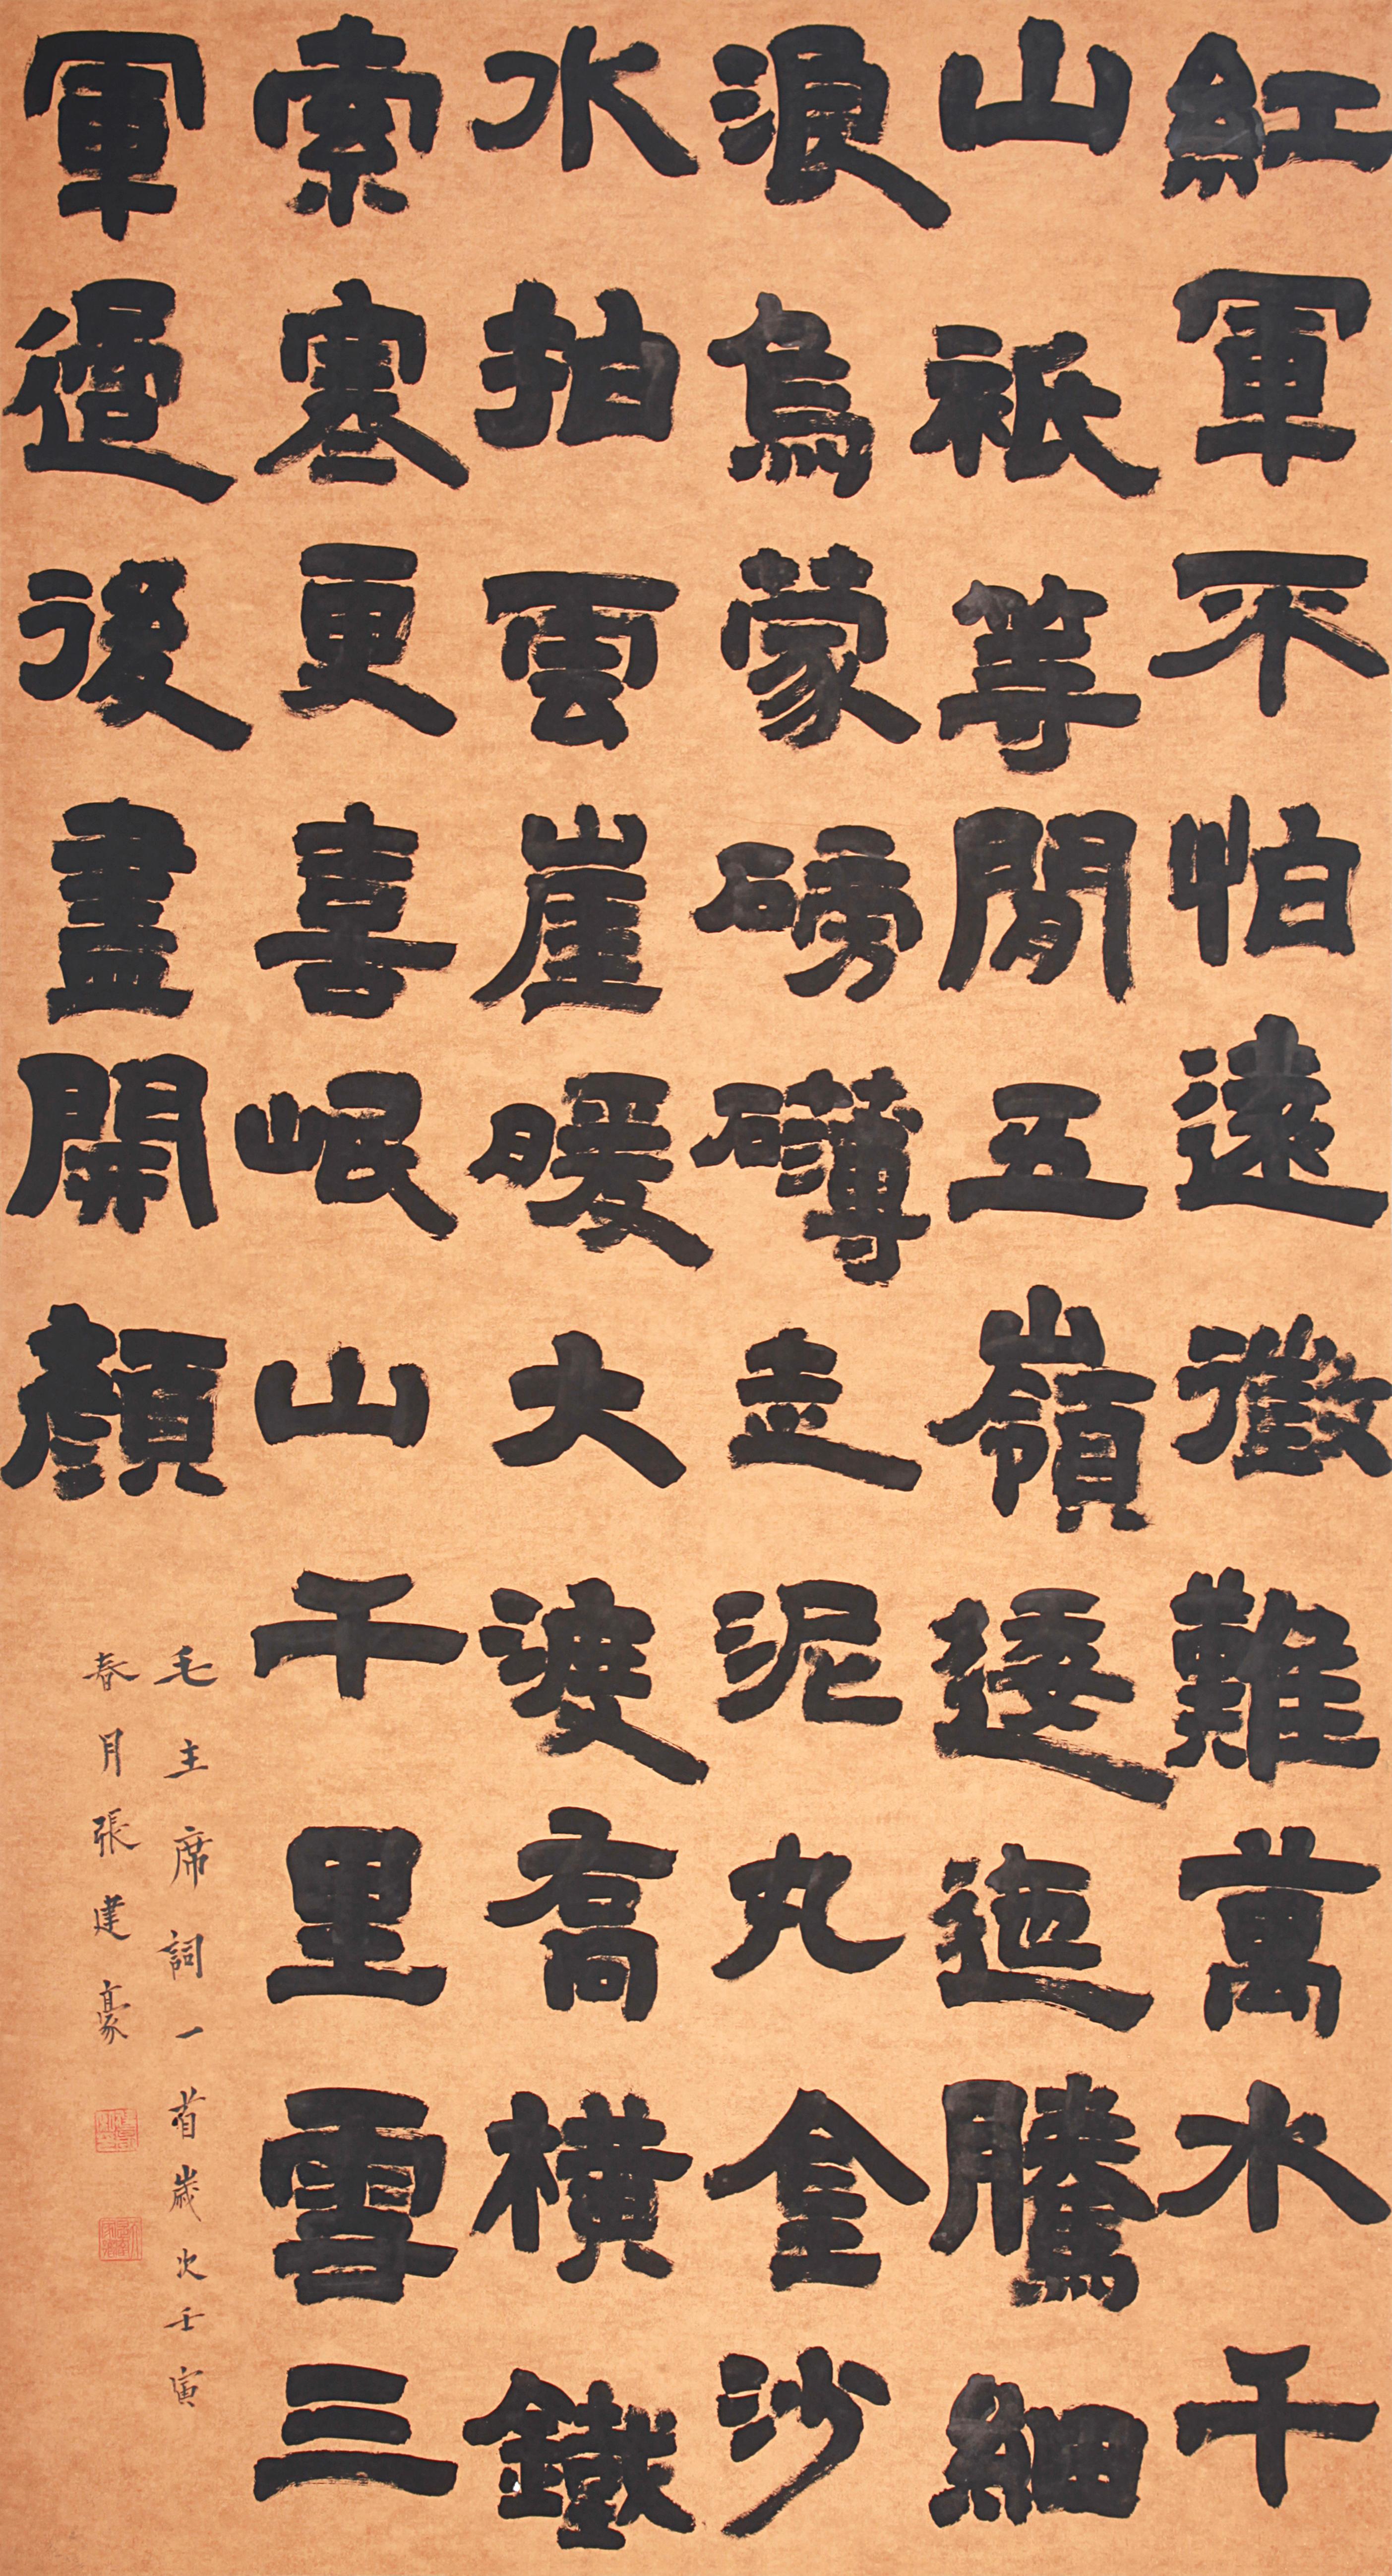 紅軍不怕遠徵難萬水千
山祇等閒五嶺逶迤騰細
浪烏蒙磅礴走泥丸金沙
水拍雲崖暖大渡喬橫鐵
索寒更喜岷山千里雪三
軍過後盡開顏
毛主席詞一首歲次壬寅
春月張建豪